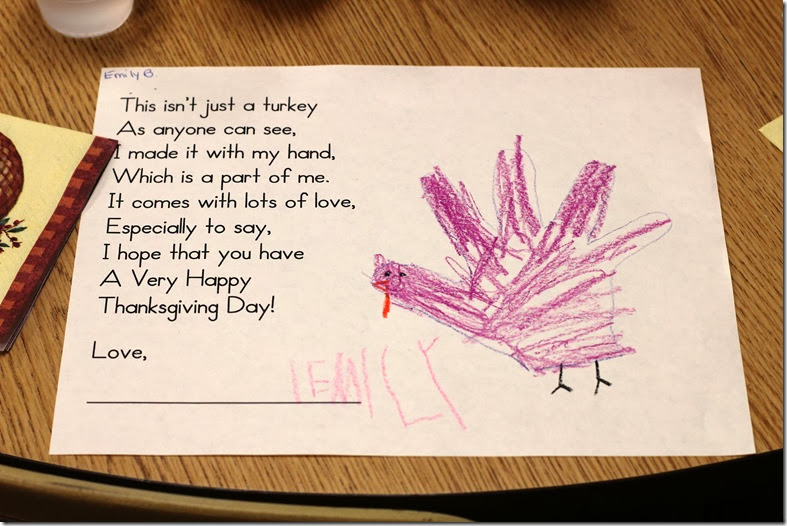 Emily B.
This isn't just a turkey
As anyone can see,
I made it with my hand,
Which is a part of me.
It comes with lots of love,
Especially to say,
I hope that you have
A Very Happy
Thanksgiving Day!
Love,
EMILY